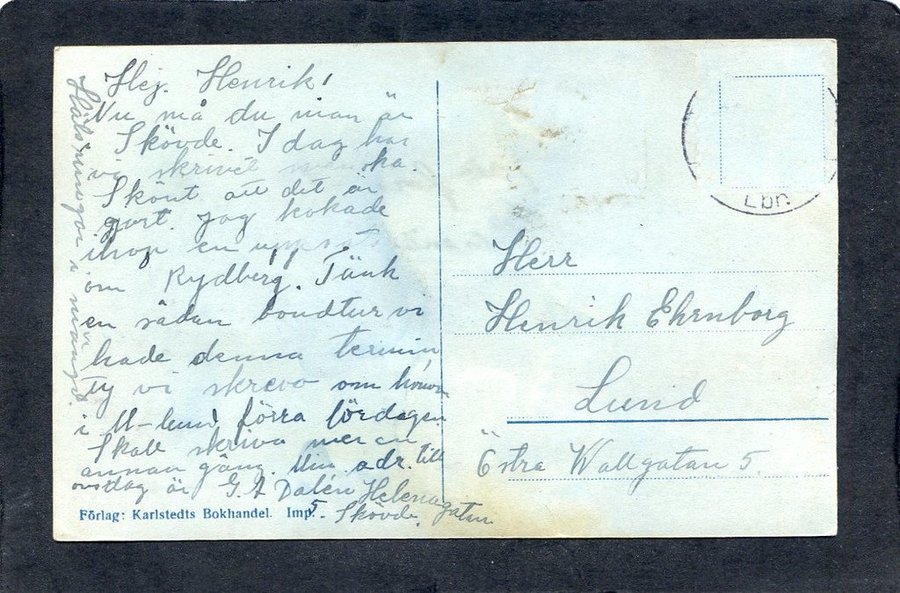 Hej. Henrik!
Nu må du man är
Skövde. I dag har
vi skrivit
Skönt att det är
gjort. Jag kokade
ihop en
om Rydberg. Tänk
en sådan bondtur vi
hade denna termin
ty vi skrevo om
i M-lund förra lördagen
Skall skriva mer en
annan gång. Min adr. till
onsdag är G. A Dalén Helenagatan
5. Skövde.
Hälsningar i mängd.
Förlag: Karlstedts Bokhandel. Imp.
LBR
Herr
Henrik Ehrnborg
Lund
Östra Wallgatan 5.